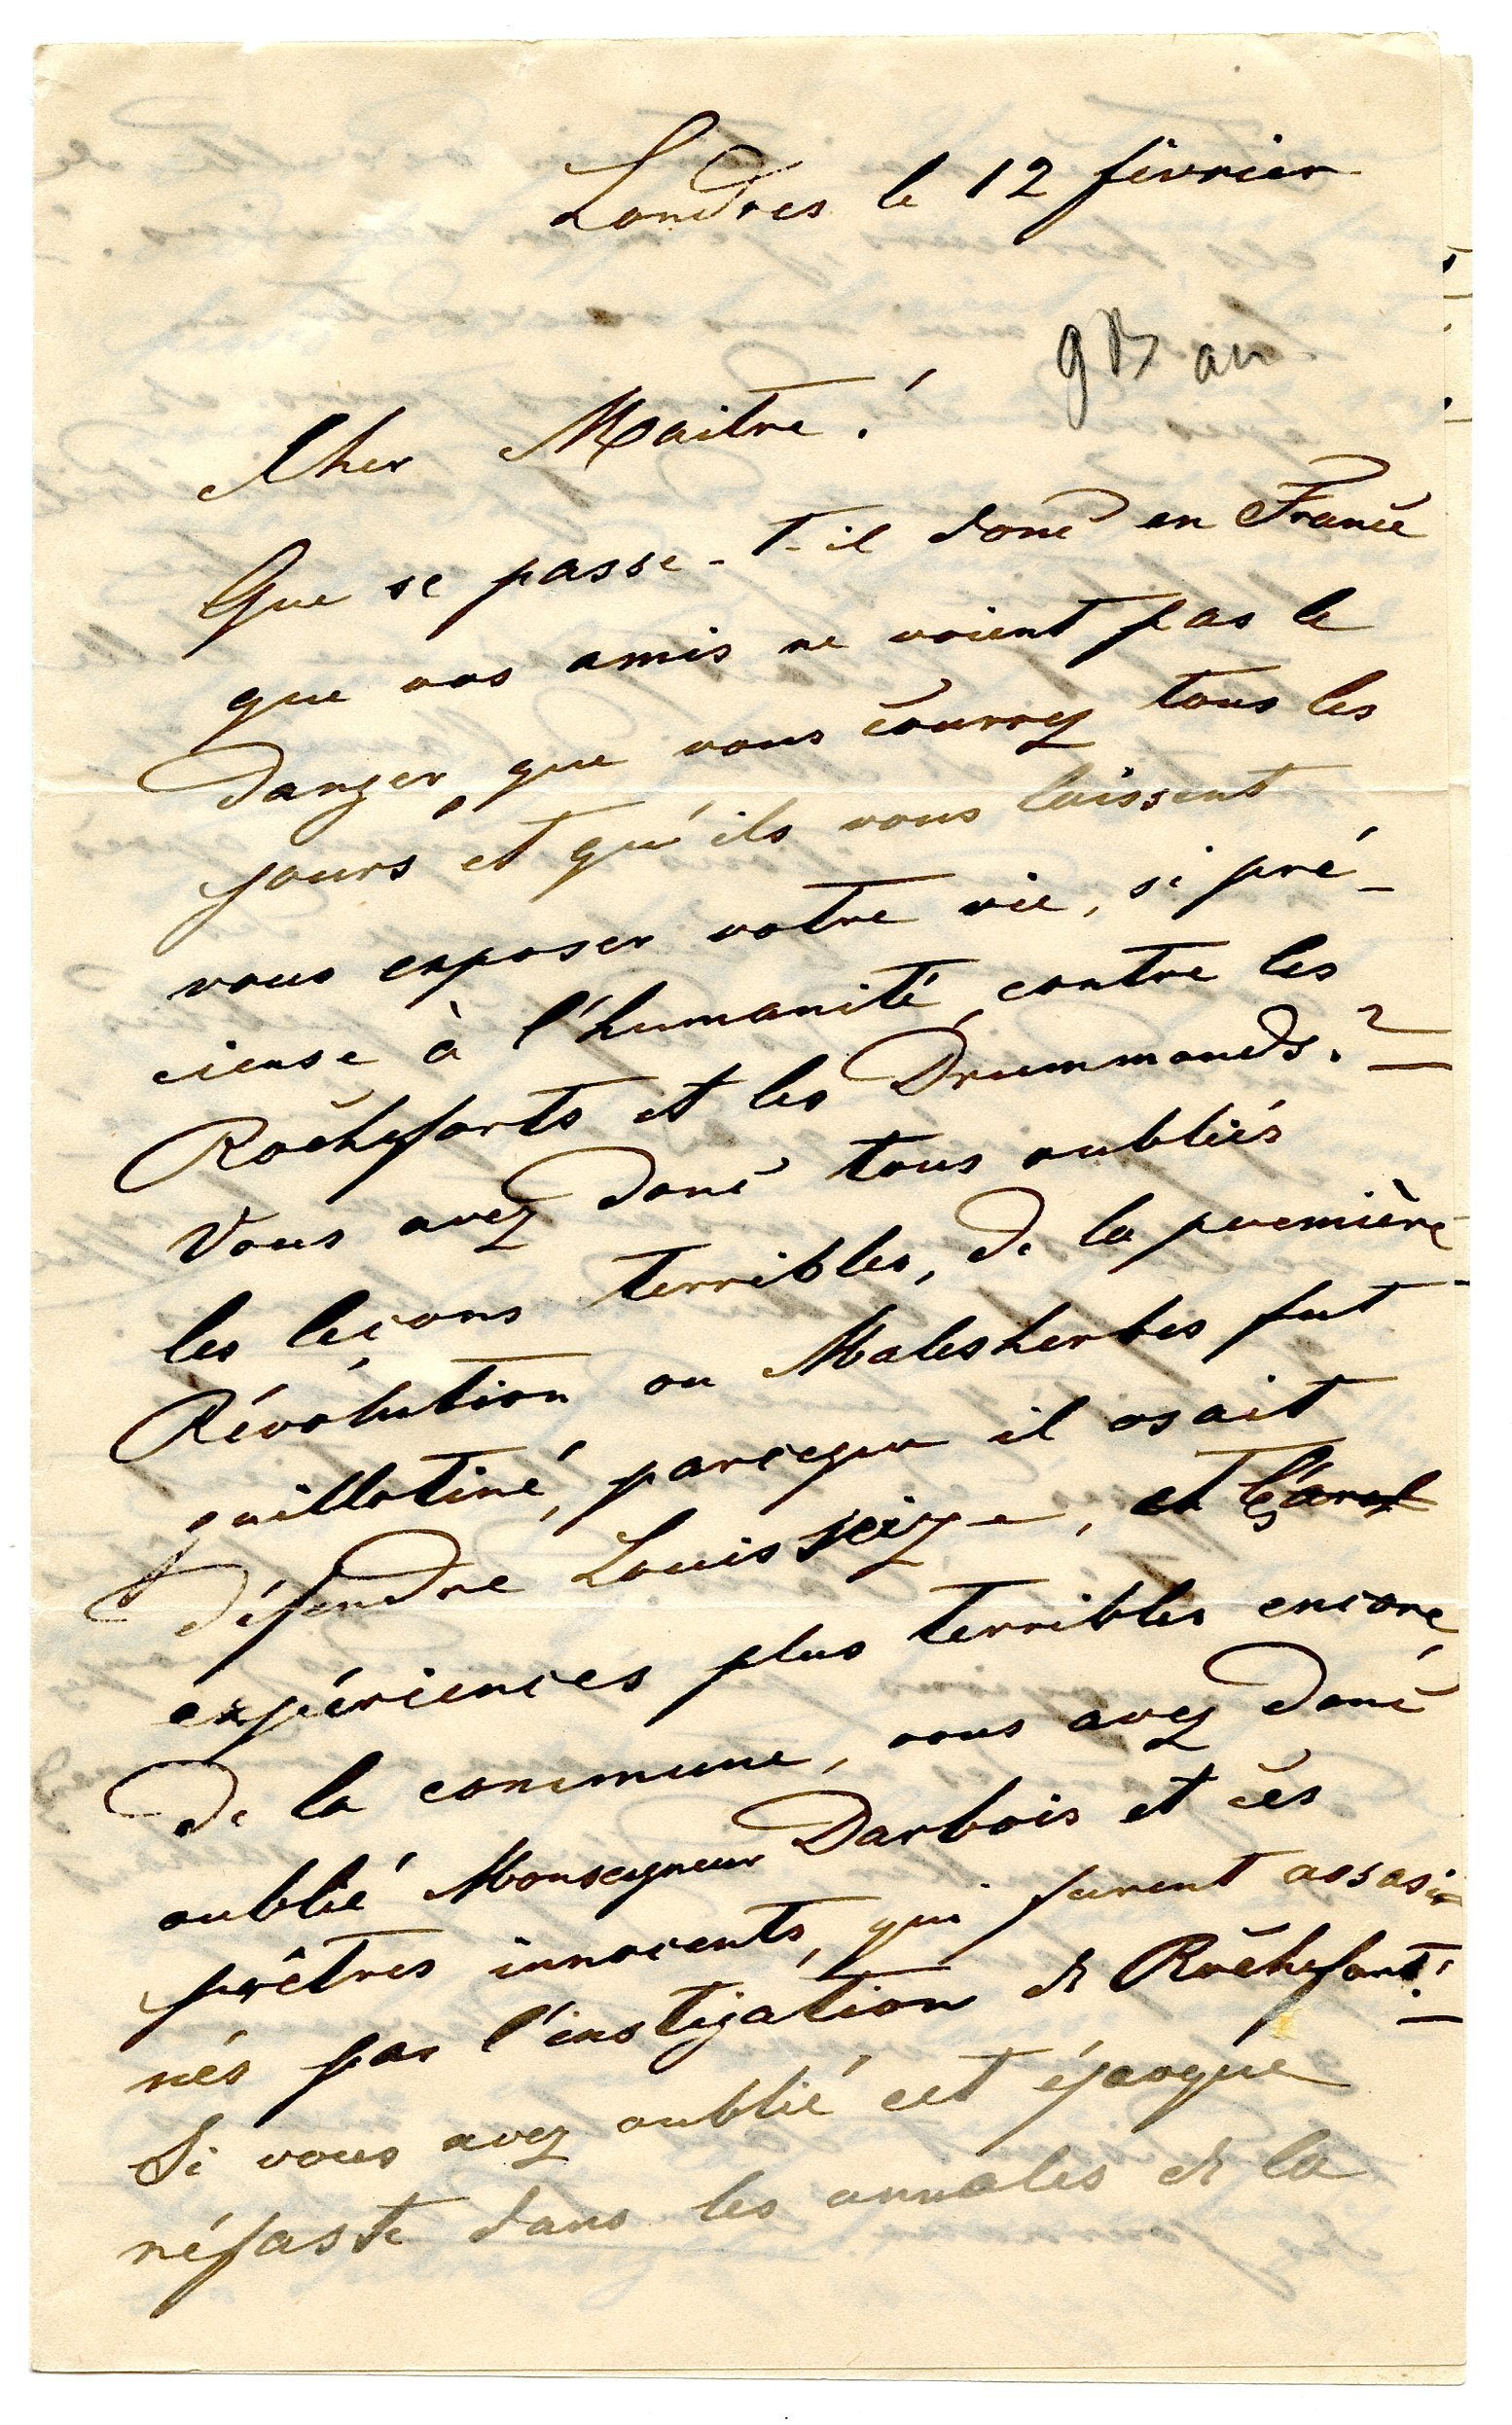 Londres le 12 février
9 B an
Cher Maitre!
Que se passe-t-il donc en France
que vos amis ne voient pas le
danger, que vous courrez tous les
jours et qu'ils vous laissent
vous exposer votre vie, si pré-
cieuse à l'humanité, contre les
Rocheforts et les Drummonds?
Vous avez donc tous oubliés
les leçons terribles, de la première
Révolution ou Malesherbes fut
guillotiné, parceque il osait
défendre Louis seize, et les
expériences plus terribles encore
de la commune, vous avez donc
oublié Monseigneur Darbois et ces
prêtres innocents, qui furent assasi-
nés par l'instigation de Rochefort!
Si vous avez oublié cet époque
néfaste dans les annales de la